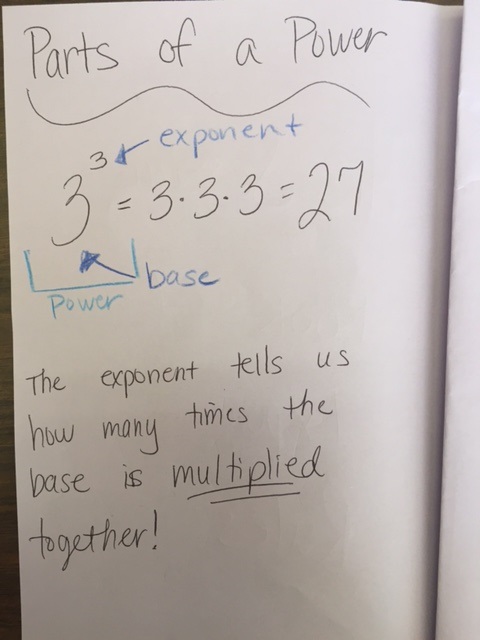 Parts of a Power
exponent
3³ = 3·3·3 = 27
base
Power
The exponent tells us
how many times the
base is multiplied
together!